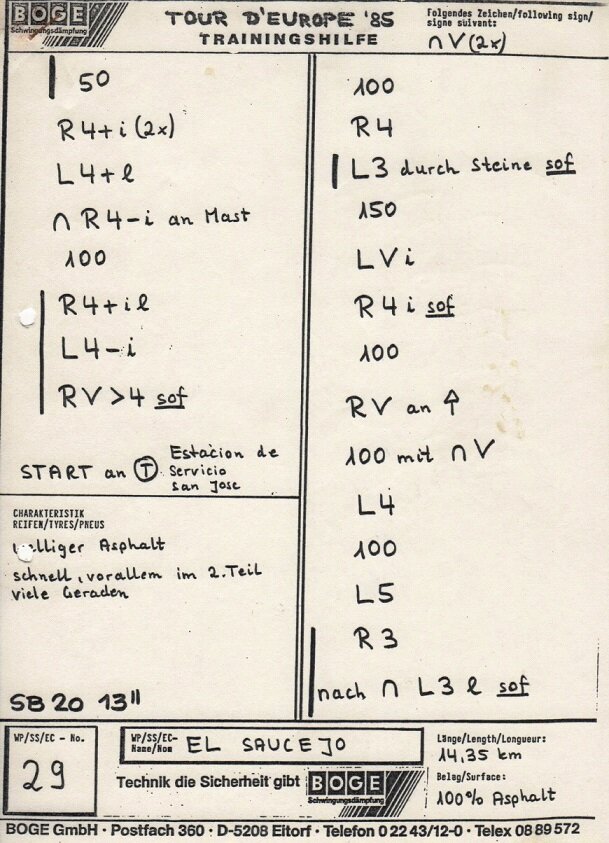 BOGE
Schwingungsdämpfung
TOUR D'EUROPE '85
TRAININGSHILFE
Folgendes Zeichen/following sign/
signe suivant:
∩ V (2x)
50
R 4+i (2x)
L 4+l
∩ R 4-i an Mast
100
R 4+il
L 4-i
R V >4 sof
START an T Estacion de
Servicio
San Jose
CHARAKTERISTIK
REIFEN/TYRES/PNEUS
welliger Asphalt
schnell, vorallem im 2. Teil
viele Geraden
SB 20 13"
100
R 4
L 3 durch Steine sof
150
L V i
R 4 i sof
100
R V an ↑
100 mit ∩ V
L 4
100
L 5
R 3
nach ∩ L 3 l sof
WP/SS/EC - No.
29
WP/SS/EC-
Name/Nom EL SAUCEJO
Technik die Sicherheit gibt BOGE
Schwingungsdämpfung
Länge/Length/Longueur:
14,35 km
Belag/Surface:
100% Asphalt
BOGE GmbH · Postfach 360 · D-5208 Eitorf · Telefon 0 22 43/12-0 · Telex 08 89 572